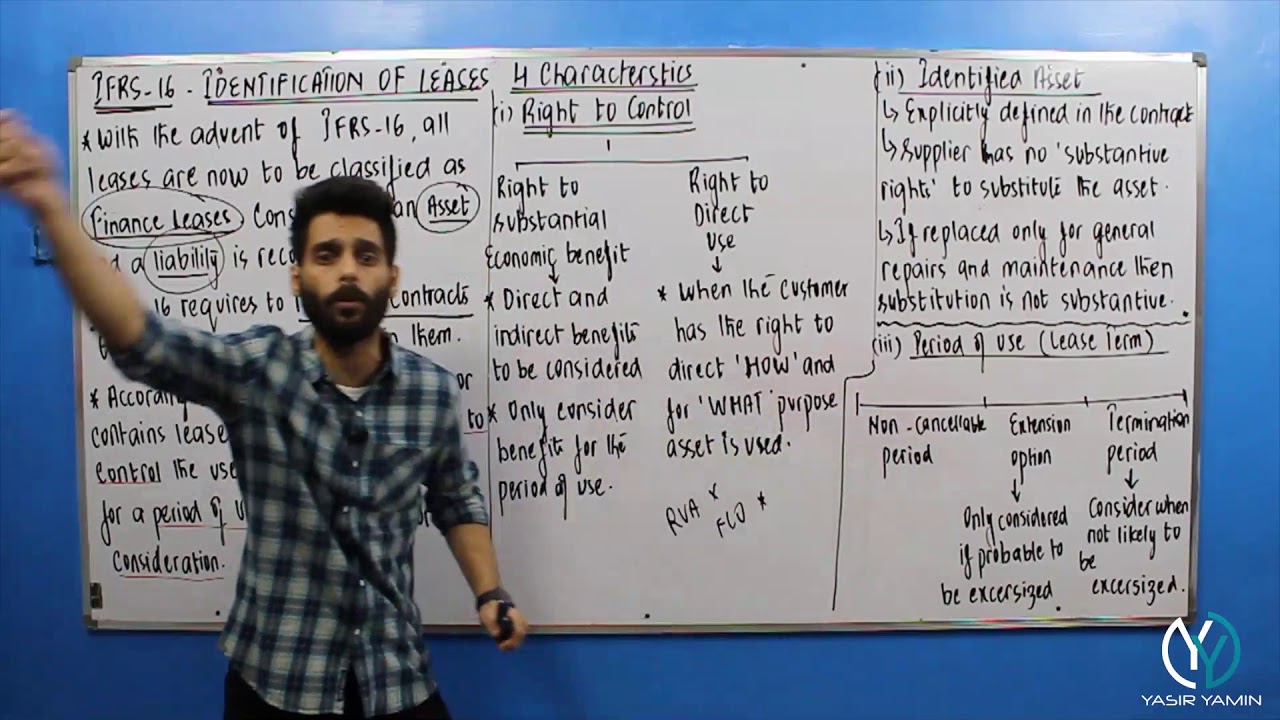 IFRS-16 - IDENTIFICATION OF LEASES
* With the advent of IFRS-16, all
leases are now to be classified as
finance Leases an Asset
a liability is
16 requires to Contracts
them.
* or
contains lease to
Control the use
for a period of
Consideration.
4 Characterstics
(i) Right to Control
Right to
substantial
Economic benefit
* Direct and
indirect benefits
to be considered
* Only consider
benefits for the
period of use.
Right to
Direct
use
* When the customer
has the right to
direct 'HOW' and
for 'WHAT' purpose
asset is used.
RVA *
FLO *
(ii) Identified Asset
↳ Explicitly defined in the contract
↳ Supplier has no 'substantive
rights' to substitute the asset.
↳ If replaced only for general
repairs and maintenance then
substitution is not substantive.
(iii) Period of use (Lease Term)
Non-cancellable
period
Extension
option
Only considered
if probable to
be excersized
Termination
period
Consider when
not likely to
be
excersized.
YY
YASIR YAMIN